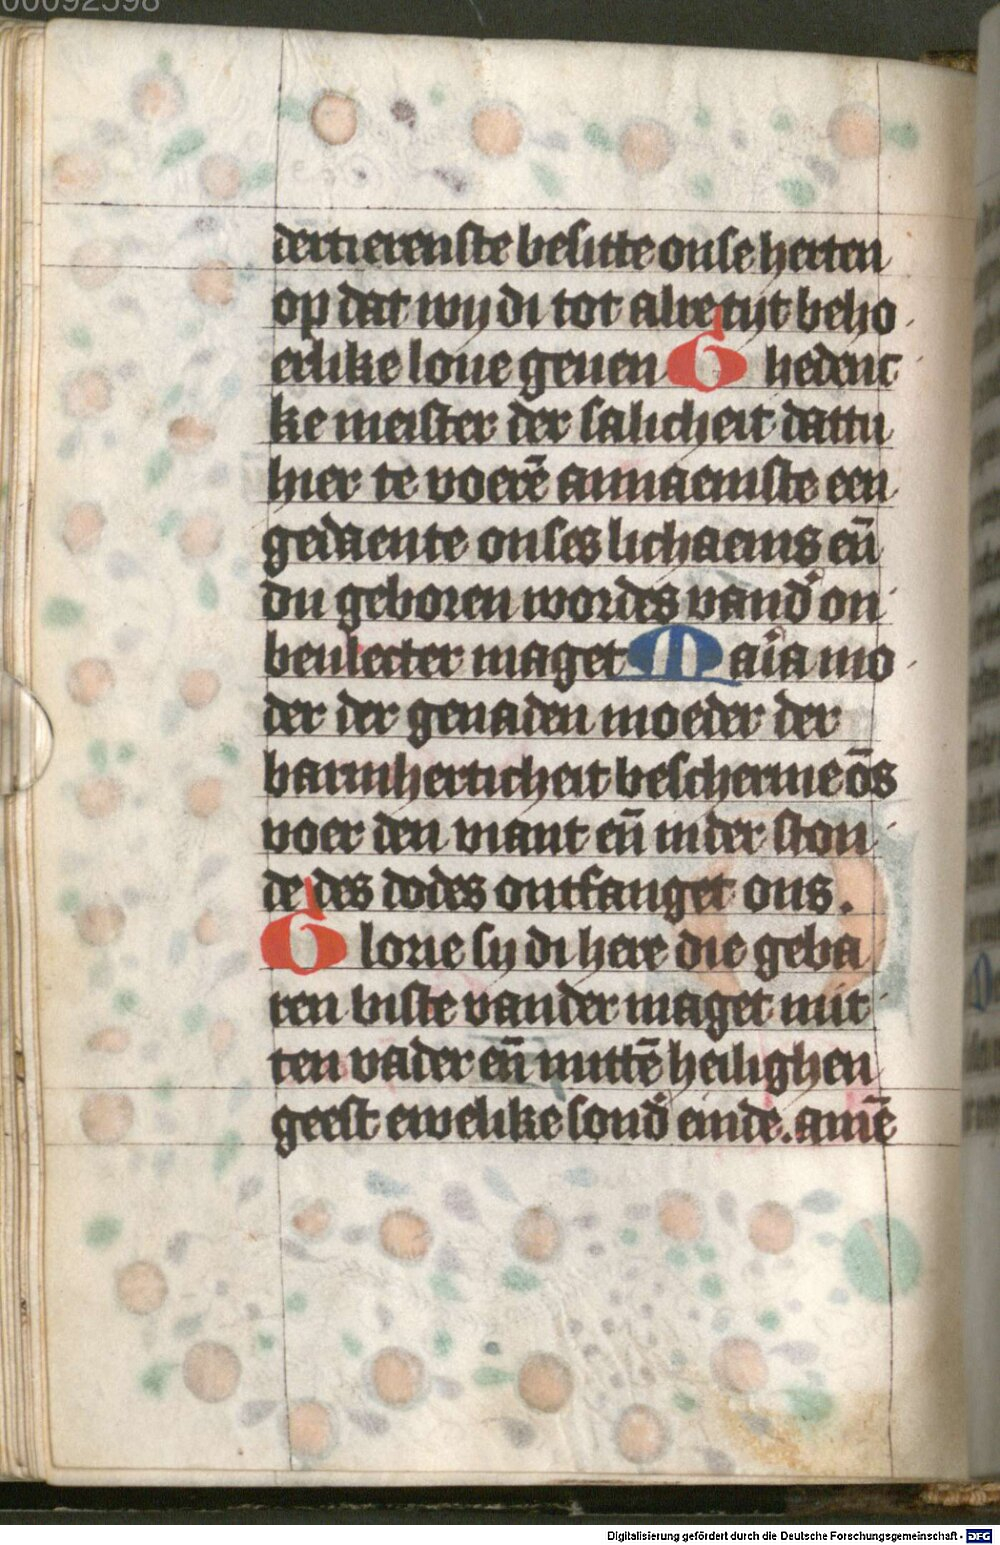 00092598
dertierenste besitte onse herten
op dat wij di tot alre tijt beho
erlike loue geuen Ghedenc
ke meister der salicheit dattu
hier te voerē annaemste een
gedaente onses lichaems eñ
du geboren wordes vand̕ on
beulecter maget Maͥa mo
der der genaden moeder der
barmherticheit bescherme ōs
voer den viant eñ in der ston
de des dodes ontfanget ons.
Glorie sij di here die geba
ren biste vander maget mit
ten vader eñ mittē heilighen
geest ewelike sond̕ einde. amē
Digitalisierung gefördert durch die Deutsche Forschungsgemeinschaft - DFG